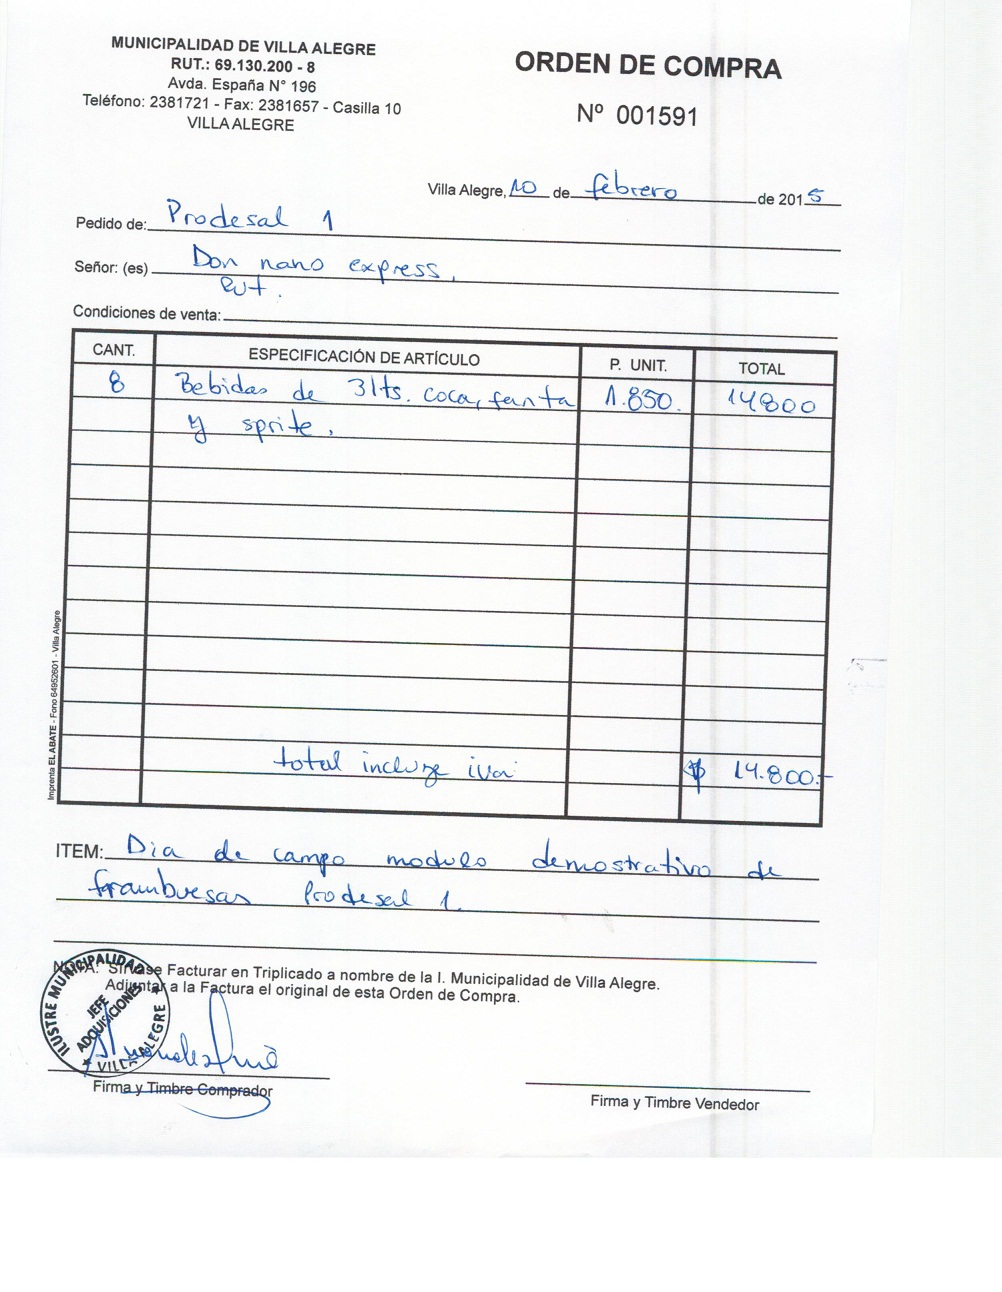 MUNICIPALIDAD DE VILLA ALEGRE
RUT.: 69.130.200 - 8
Avda. España N° 196
Teléfono: 2381721 - Fax: 2381657 - Casilla 10
VILLA ALEGRE
ORDEN DE COMPRA
Nº 001591
Villa Alegre, 10 de febrero de 2015
Pedido de: Prodesal 1
Señor: (es) Don nano express.
Rut.
Condiciones de venta:
CANT. ESPECIFICACIÓN DE ARTÍCULO P. UNIT. TOTAL
8 Bebidas de 3lts. coca, fanta 1.850. 14800
y sprite.
total incluye iva $ 14.800.-
Imprenta EL ABATE - Fono 64952601 - Villa Alegre
ITEM: Dia de campo modulo demostrativo de
frambuesas Prodesal 1.
NOTA: Sírvase Facturar en Triplicado a nombre de la I. Municipalidad de Villa Alegre.
Adjuntar a la Factura el original de esta Orden de Compra.
ILUSTRE MUNICIPALIDAD
JEFE
ADQUISICIONES
VILLA ALEGRE
Firma y Timbre Comprador
Firma y Timbre Vendedor